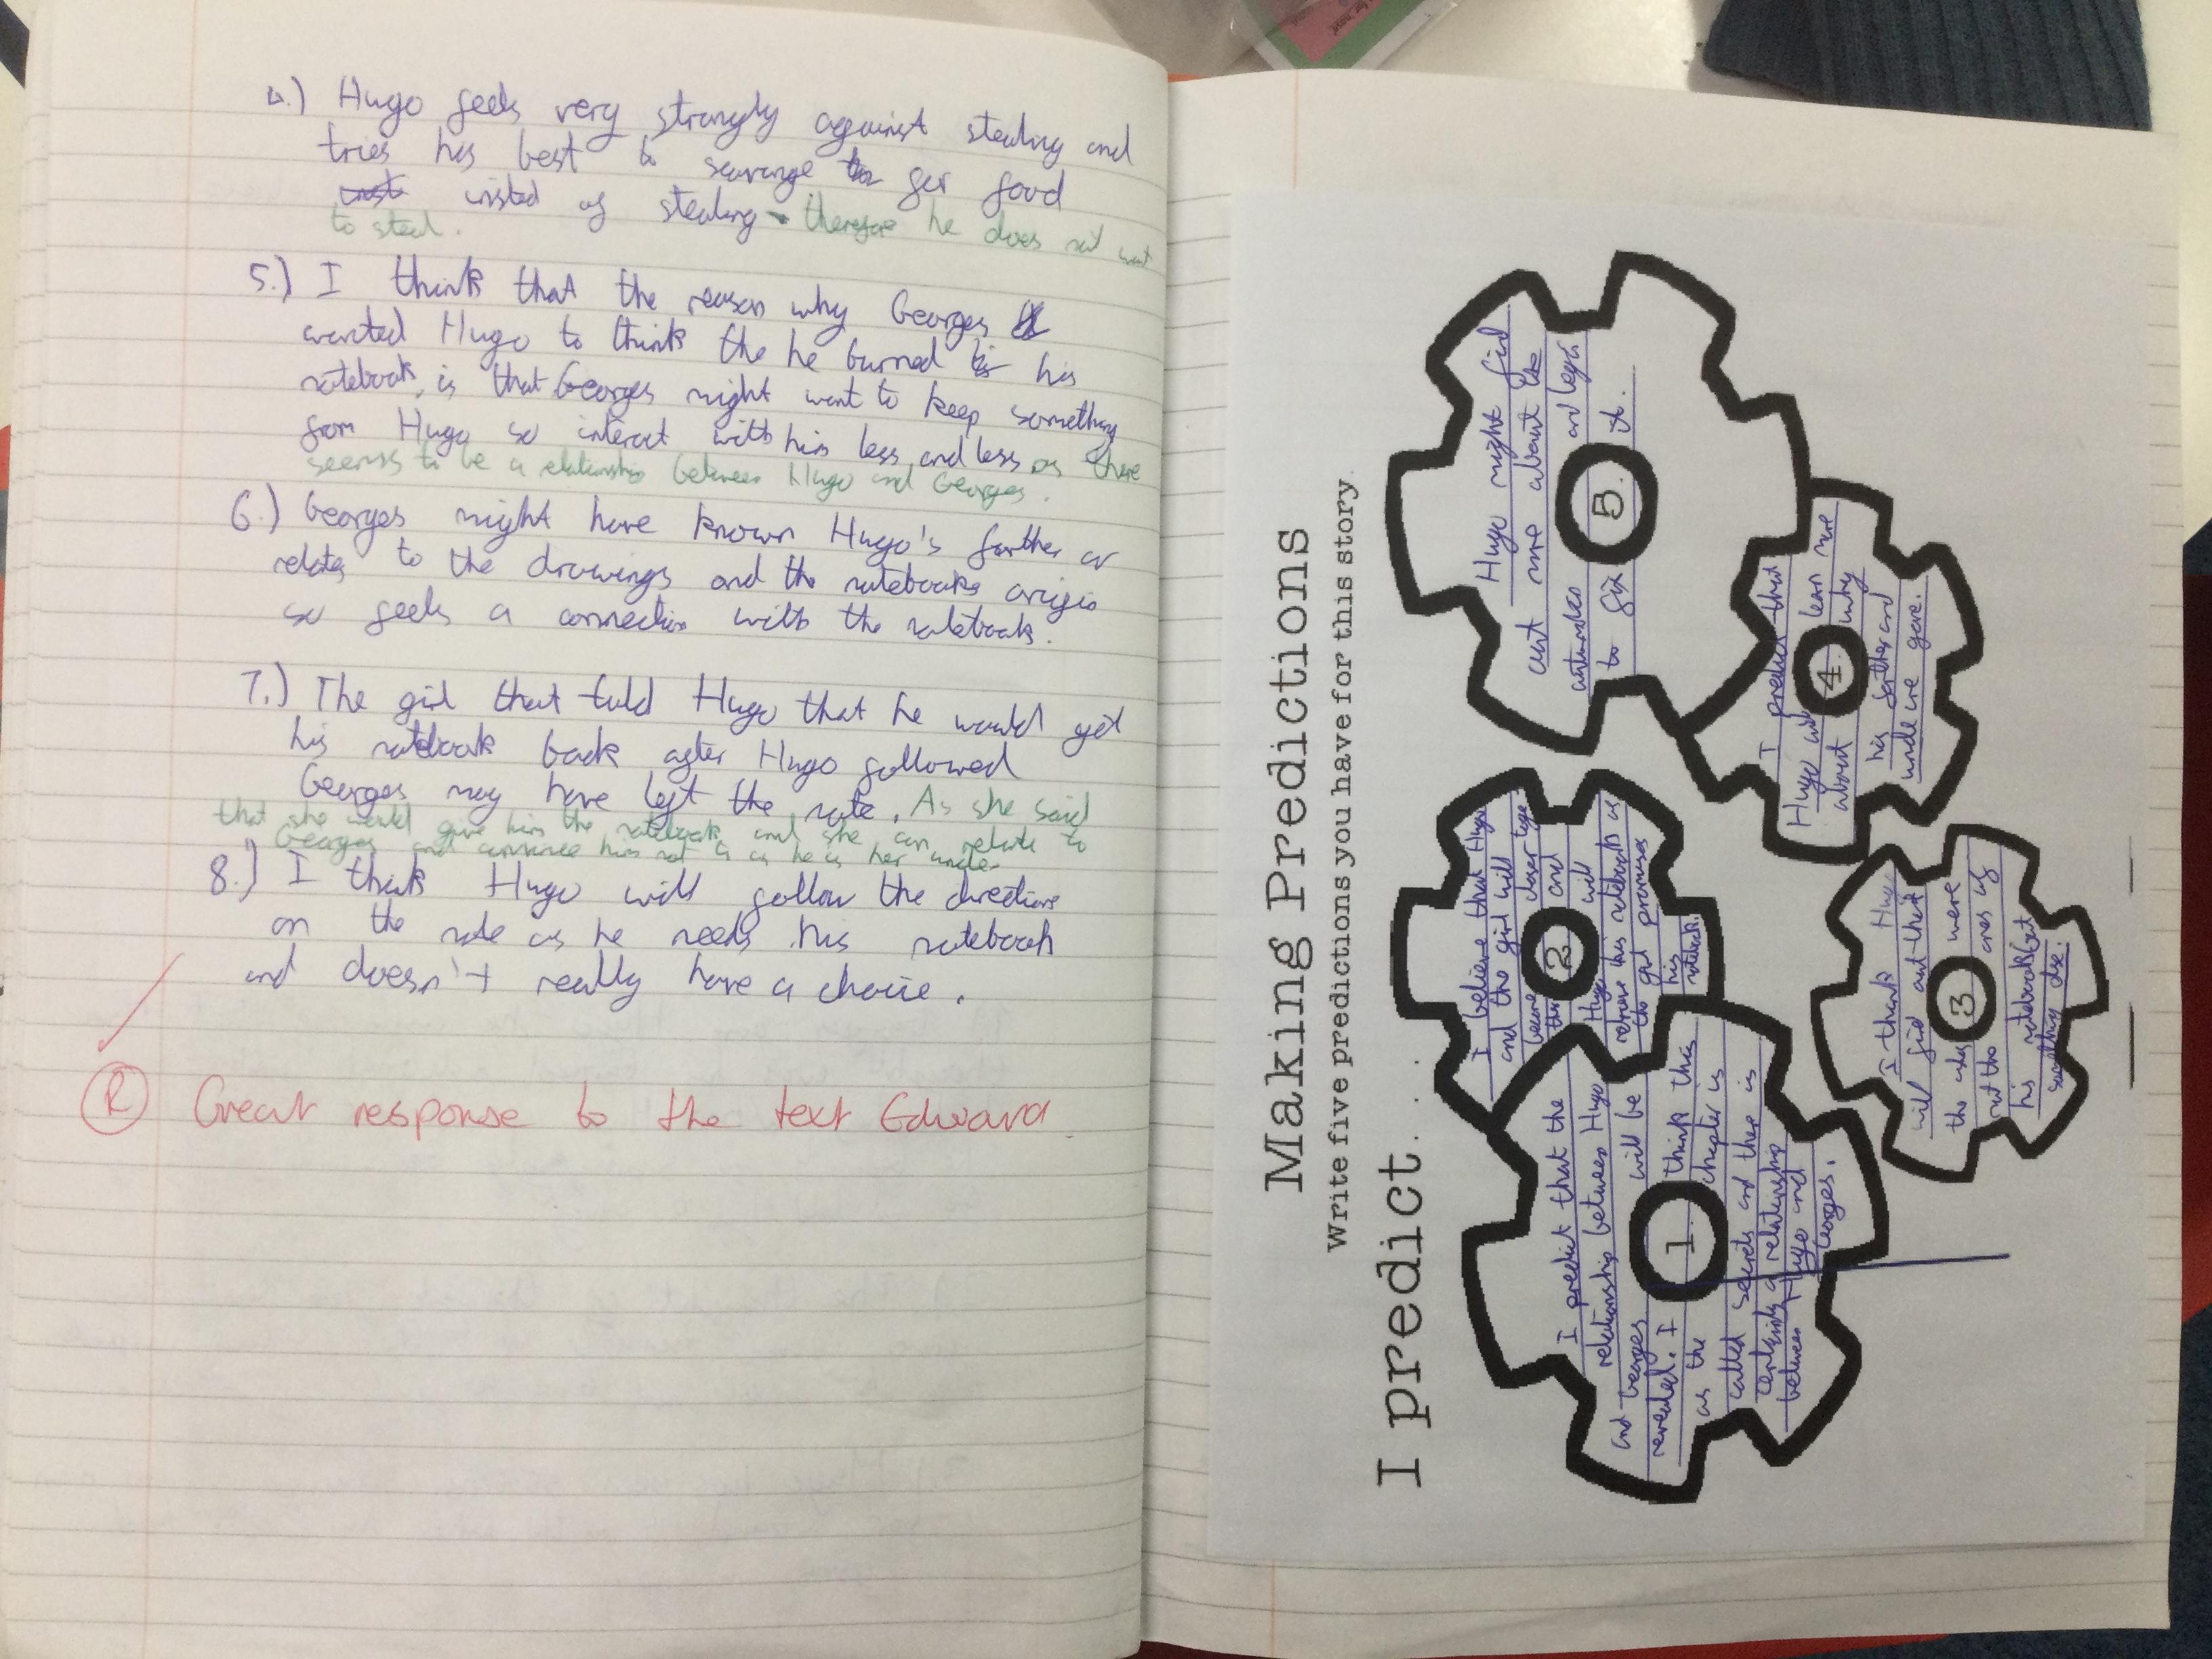 4.) Hugo feels very strongly against stealing and
tries his best to scavenge for food
insted of stealing therefore he does not want
to steal.
5.) I think that the reason why Georges
wanted Hugo to think the he burned his
notebook, is that Georges might want to keep something
from Hugo so interact with him less and less as there
seems to be a relationship between Hugo and Georges.
6.) Georges might have known Hugo's farther or
relates to the drawings and the notebooks origin
so feels a connection with the notebook.
7.) The girl that told Hugo that he would get
his notebook back after Hugo followed
Georges may have left the note. As she said
that she would give him the notebook and she can relate to
Georges and convince him not as he is her uncle
8.) I think Hugo will follow the directions
on the note as he needs his notebook
and doesn't really have a choice.
R Great response to the text Edward
Making Predictions
Write five predictions you have for this story.
I predict....
I predict that the
relationship between Hugo
and Georges will be
revealed. I think this
1.
as the chapter is
called secrets and there is
a relationship
between Hugo and
Georges.
I believe that Hugo
and the girl will
become closer
2
and
Hugo will
retrieve his notebook as
the girl promises
his
notebook.
I think Hugo
will find out that
the ashes were
3
not the ones of
his notebook but
something else.
I predict that
Hugo will learn more
4
about why
his father and
uncle are gone.
Hugo might find
out more about the
and
5.
to fix it.